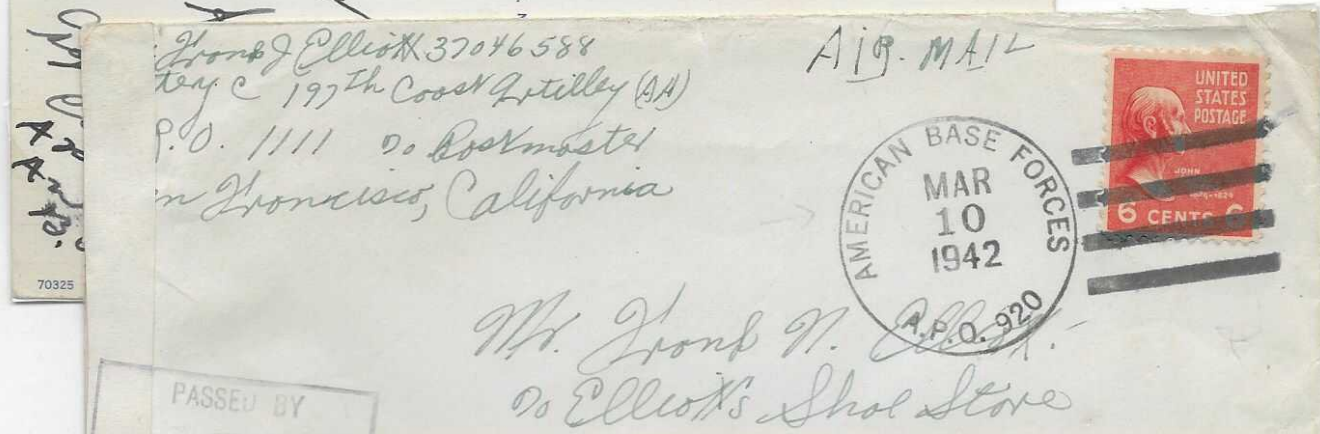 Frank J Elliott 37046588
tery C 197th Coast Artillery (AA)
P.O. 1111 % Postmaster
n Francisco, California
AIR. MAIL
UNITED
STATES
POSTAGE
JOHN
6 CENTS 6
AMERICAN BASE FORCES
MAR
10
1942
A.P.O. 920
Mr. Frank N. Elliott.
% Elliott's Shoe Store
PASSED BY
70325